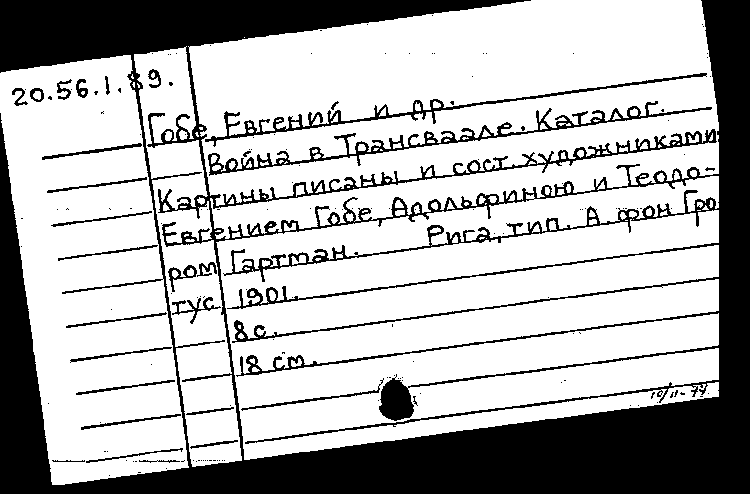 20.56.1.89.
Гобе, Евгений и др.
Война в Трансваале. Каталог.
Картины писаны и сост. художниками
Евгением Гобе, Адольфиною и Теодо-
ром Гартман. Рига, тип. А. фон Гро
тус, 1901.
8 с.
18 см.
10/II-77